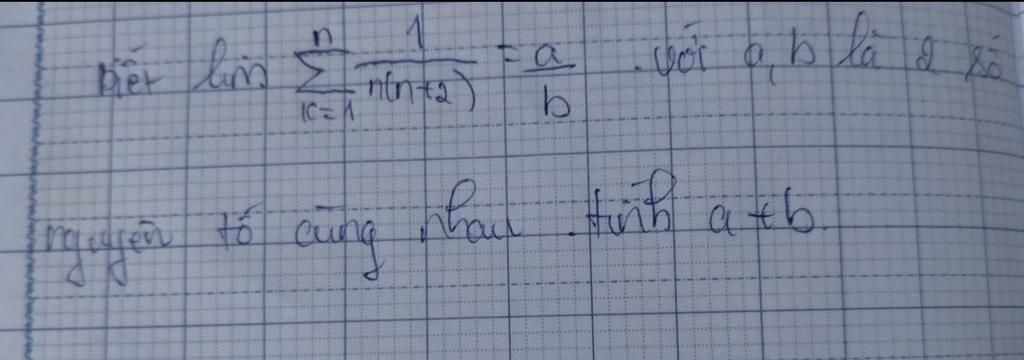 Biết lim \sum_{k=1}^{n} \frac{1}{n(n+2)} = \frac{a}{b} . với a, b là 2 số
nguyên tố cùng nhau . tính a + b.